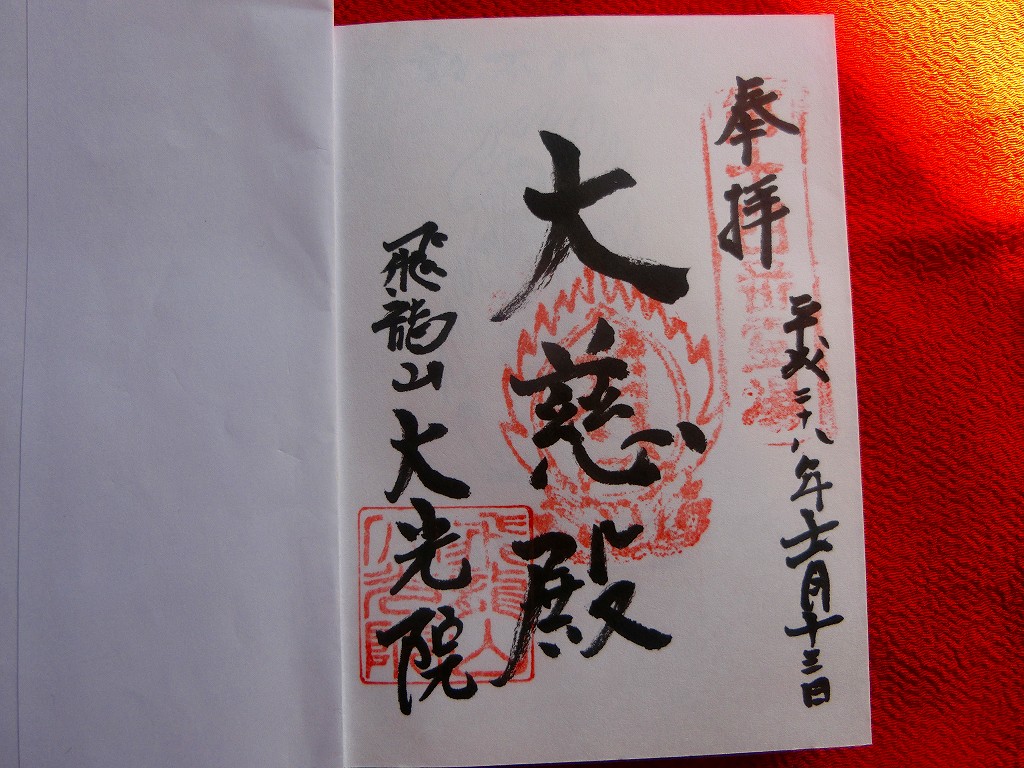 奉拝
平成二十八年十一月十三日
大慈殿
飛龍山大光院